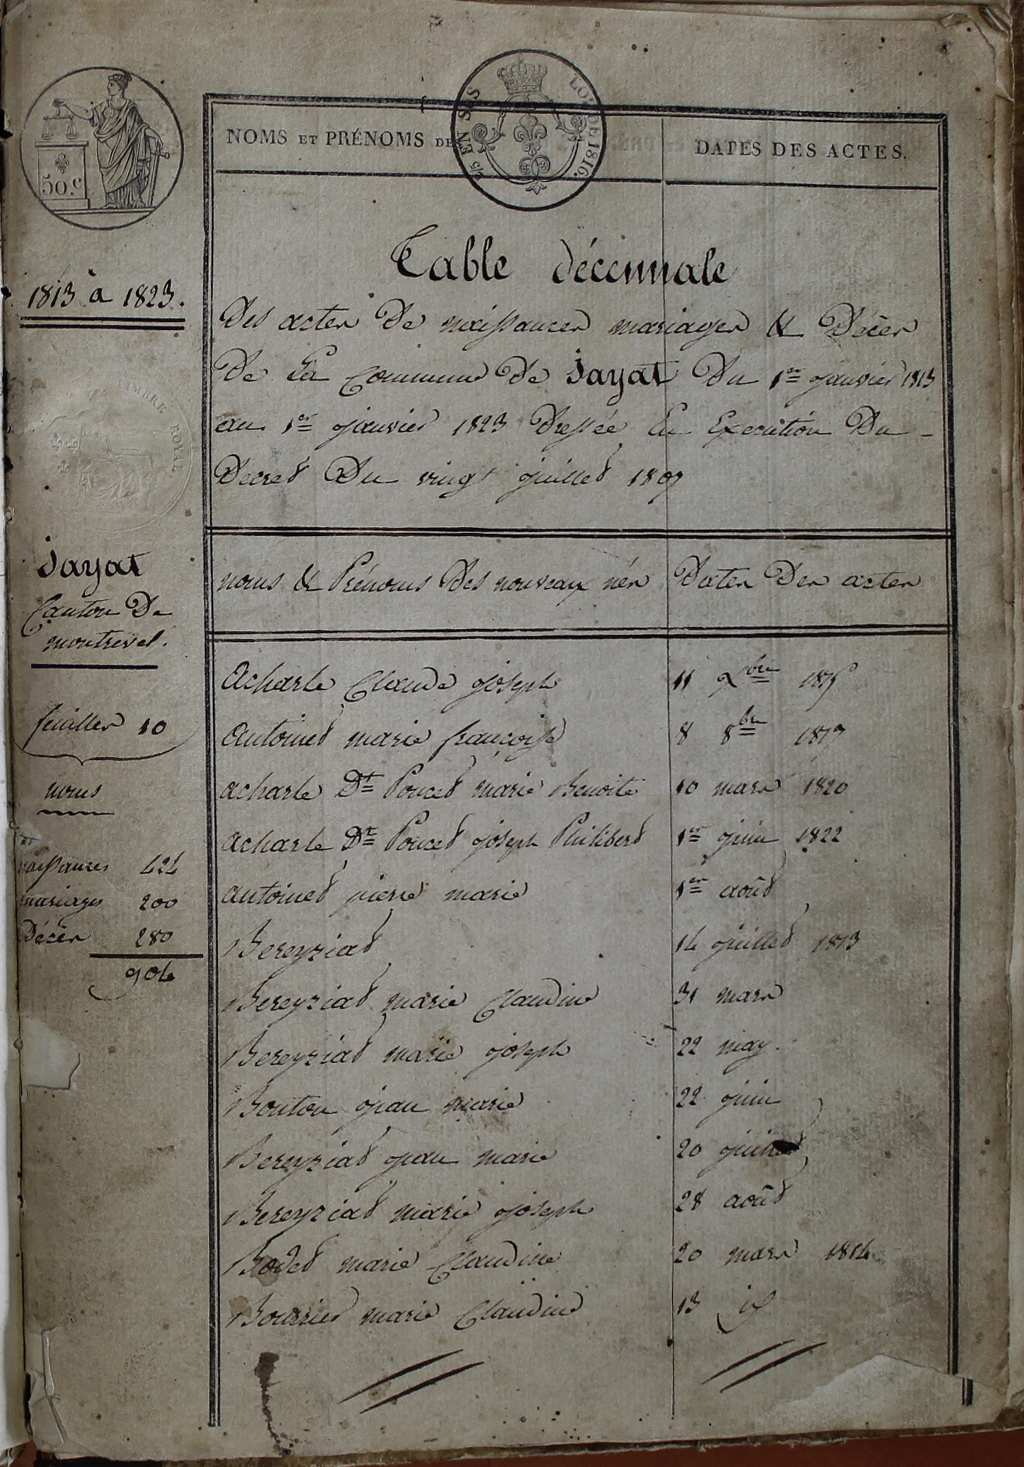 50.c
25 EN SUS
LOI DE 1816.
NOMS ET PRÉNOMS DES
DATES DES ACTES.
1813 à 1823.
Table décennale
Des actes De naissances mariages & Décès
De La Commune De Jayat Du 1er janvier 1813
au 1er janvier 1823 Dressée En Execution Du
Decret Du vingt juillet 1807
TIMBRE ROYAL
Jayat
Canton De
montrevel.
feuilles 10
noms
naissances 424
mariages 200
Décès 280
904
noms & Prénoms Des nouveaux nés Dates Des actes
acharle Claude joseph 11 9bre
antoinet marie françoise 8 8bre 1817
acharle Dt Poncet marie Benoite 10 mars 1820
acharle Dt Poncet joseph Philibert 1er juin 1822
antoinet pierre marie 1er août
Bereyziat 14 juillet 1813
Bereyziat marie Claudine 31 mars
Bereyziat marie joseph 22 may.
Bouton jean marie 22 juin
Bereyziat jean marie 20
Bereyziat marie joseph 28 août
Bodet marie Claudine 20 mars 1814
Bourrier marie Claudine 13